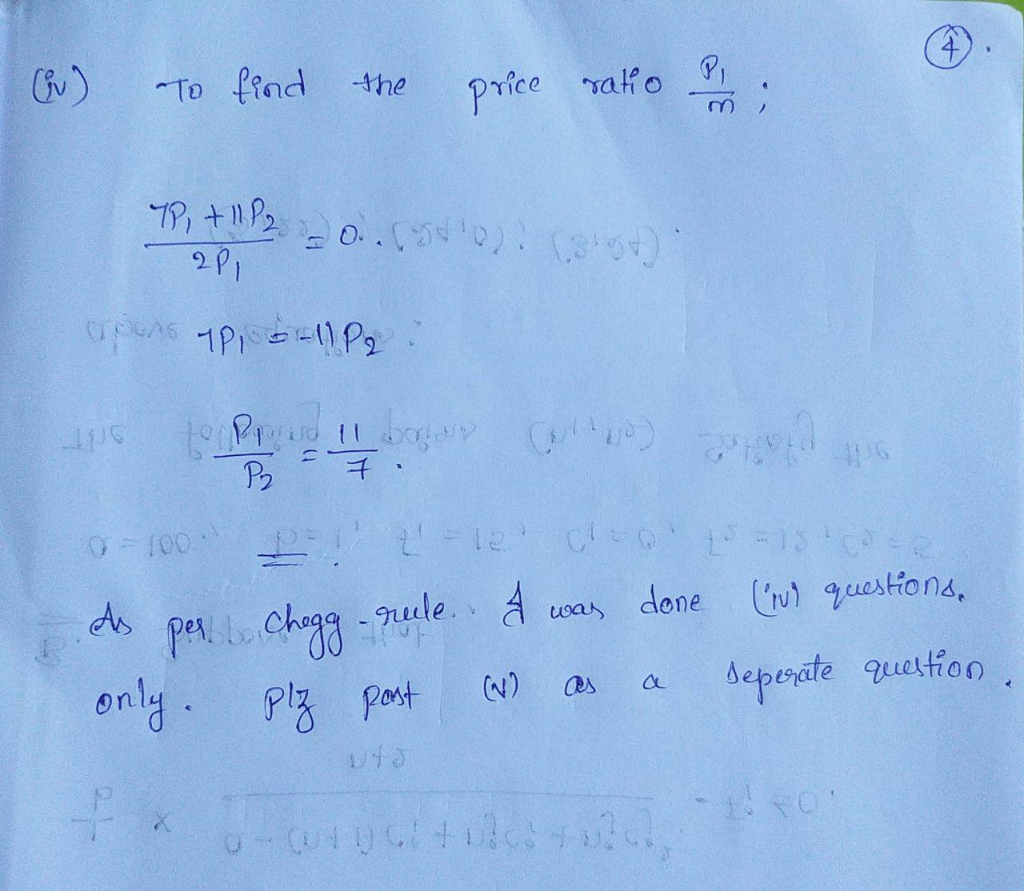 4.
(iv) To find the price ratio P1/m ;
7P1 + 11P2 / 2P1 = 0.
7P1 = -11P2
P1/P2 = 11/7 .
As per Chegg-rule. I was done (iv) questions,
only. Plz post (v) as a seperate question.